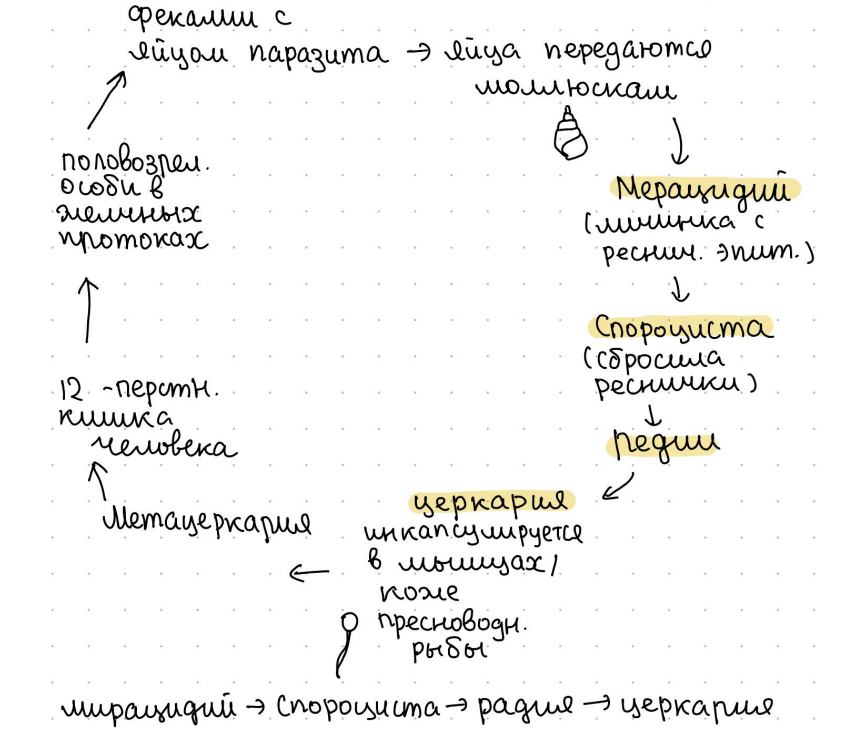 фекалии с
яйцом паразита → яйца передаются
моллюскам
Мерацидий
(личинка с
реснич. эпит.)
Спороциста
(сбросила
реснички)
редии
церкария
инкапсулируется
в мышцах/
коже
пресноводн.
рыбы
Метацеркария
12-перстн.
кишка
человека
половозрел.
особи в
желчных
протоках
мирацидий → спороциста → радия → церкария